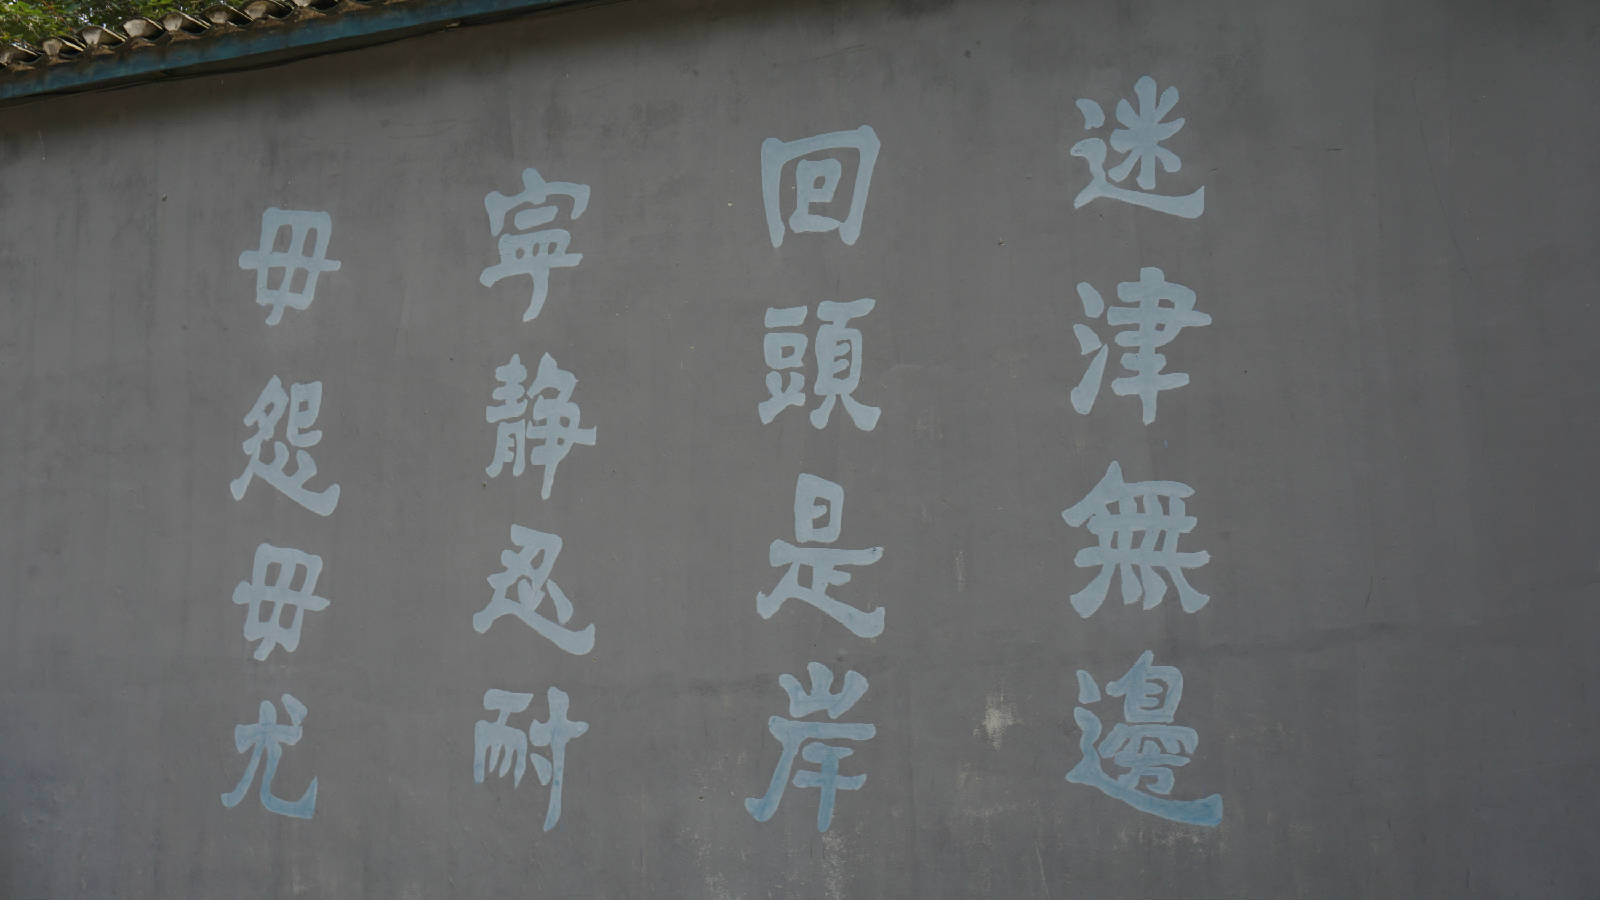 迷津無邊
回頭是岸
寧靜忍耐
毋怨毋尤